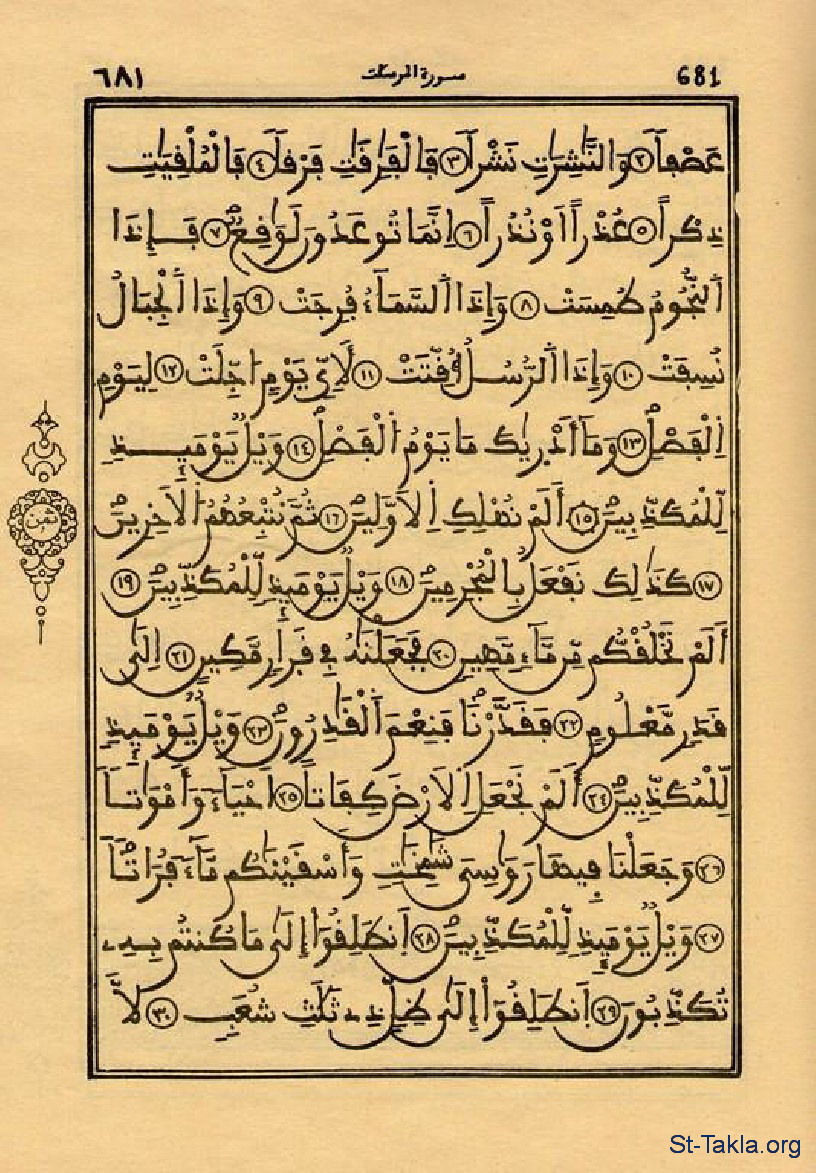 ٦٨١ سورة المرسلت 681
عَصْفاً ٢ وَالنَّٰشِرَٰتِ نَشْراً ٣ فَالْفَٰرِقَٰتِ فَرْقاً ٤ فَالْمُلْقِيَٰتِ
ذِكْراً ٥ عُذْراً اَوْ نُذُراً ٦ اِنَّمَا تُوعَدُونَ لَوَٰقِعٌ ٧ فَإِذَا
اَ۬لنُّجُومُ طُمِسَتْ ٨ وَإِذَا اَ۬لسَّمَآءُ فُرِجَتْ ٩ وَإِذَا اَ۬لْجِبَالُ
نُسِفَتْ ١٠ وَإِذَا اَ۬لرُّسُلُ أُقِّتَتْ ١١ لَأِيِّ يَوْمٍ اُجِّلَتْ ١٢ لِيَوْمِ
اِ۬لْفَصْلِ ١٣ وَمَآ أَدْر۪ىٰكَ مَا يَوْمُ اُ۬لْفَصْلِ ١٤ وَيْلٌ يَوْمَئِذٍ
لِّلْمُكَذِّبِينَ ١٥ أَلَمْ نُهْلِكِ اِ۬لَاوَّلِينَ ١٦ ثُمَّ نُتْبِعُهُمُ اُ۬لَاخِرِينَ
١٧ كَذَٰلِكَ نَفْعَلُ بِالْمُجْرِمِينَ ١٨ وَيْلٌ يَوْمَئِذٍ لِّلْمُكَذِّبِينَ ١٩
أَلَمْ نَخْلُقكُّم مِّن مَّآءٍ مَّهِينٍ ٢٠ فَجَعَلْنَٰهُ فِے قَرَارٍ مَّكِينٍ ٢١ اِلَىٰ
قَدَرٍ مَّعْلُومٍ ٢٢ فَقَدَّرْنَا فَنِعْمَ اَ۬لْقَٰدِرُونَ ٢٣ وَيْلٌ يَوْمَئِذٍ
لِّلْمُكَذِّبِينَ ٢٤ أَلَمْ نَجْعَلِ اِ۬لَارْضَ كِفَاتاً ٢٥ اَحْيَآءً وَأَمْوَٰتاً
٢٦ وَجَعَلْنَا فِيهَا رَوَٰسِىَ شَٰمِخَٰتٍ وَأَسْقَيْنَٰكُم مَّآءً فُرَاتاً
٢٧ وَيْلٌ يَوْمَئِذٍ لِّلْمُكَذِّبِينَ ٢٨ اَ۪نطَلِقُوٓاْ إِلَىٰ مَا كُنتُم بِهِۦ
تُكَذِّبُونَ ٢٩ اَ۪نطَلِقُوٓاْ إِلَىٰ ظِلٍّ ذِے ثَلَٰثِ شُعَبٍ ٣٠ لَّا
ثمن
St-Takla.org